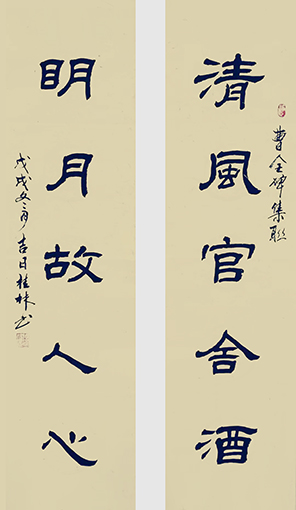 曹全碑集聯
清風官舍酒
明月故人心
戊戌冬月吉日桂林书